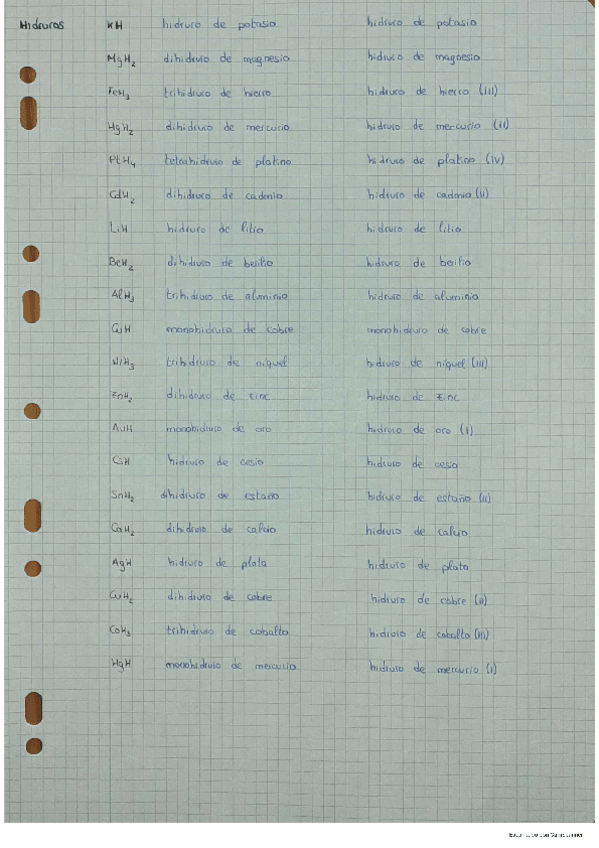 Hidruros KH hidruro de potasio hidruro de potasio
MgH2 dihidruro de magnesio hidruro de magnesio
FeH3 trihidruro de hierro hidruro de hierro (III)
HgH2 dihidruro de mercurio hidruro de mercurio (II)
PtH4 tetrahidruro de platino hidruro de platino (IV)
CdH2 dihidruro de cadmio hidruro de cadmio (II)
LiH hidruro de litio hidruro de litio
BeH2 dihidruro de berilio hidruro de berilio
AlH3 trihidruro de aluminio hidruro de aluminio
CuH monohidruro de cobre monohidruro de cobre
NiH3 trihidruro de niquel hidruro de niquel (III)
ZnH2 dihidruro de zinc hidruro de zinc
AuH monohidruro de oro hidruro de oro (I)
CsH hidruro de cesio hidruro de cesio
SnH2 dihidruro de estaño hidruro de estaño (II)
CaH2 dihidruro de calcio hidruro de calcio
AgH hidruro de plata hidruro de plata
CuH2 dihidruro de cobre hidruro de cobre (II)
CoH3 trihidruro de cobalto hidruro de cobalto (III)
HgH monohidruro de mercurio hidruro de mercurio (I)